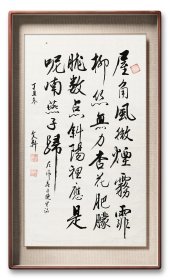 屋角風微煙霧霏
柳絲無力杏花肥朦
朧數点斜陽裡應是
呢喃燕子歸
丁丑冬